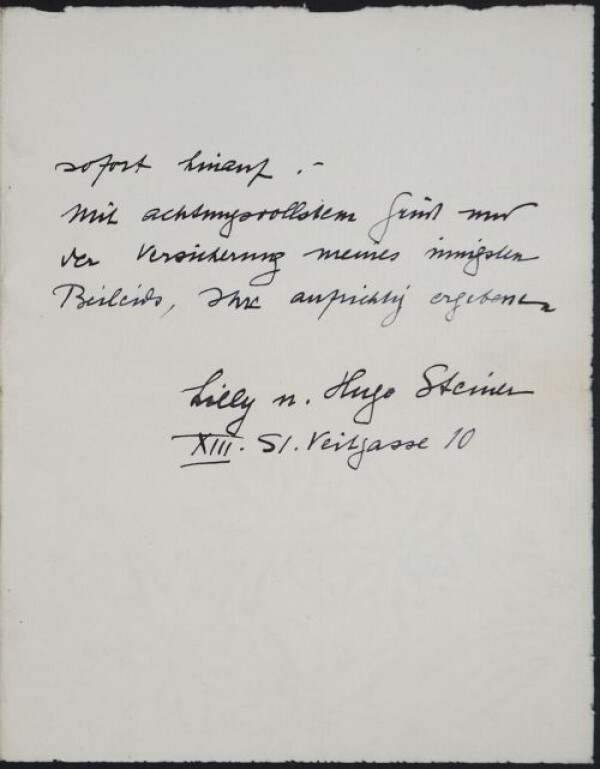 sofort hinauf .–
Mit achtungsvollstem Gruß und
der Versicherung meines innigsten
Beileids, Ihre aufrichtig ergebenen
Lilly u. Hugo Steiner
XIII. St. Veitgasse 10